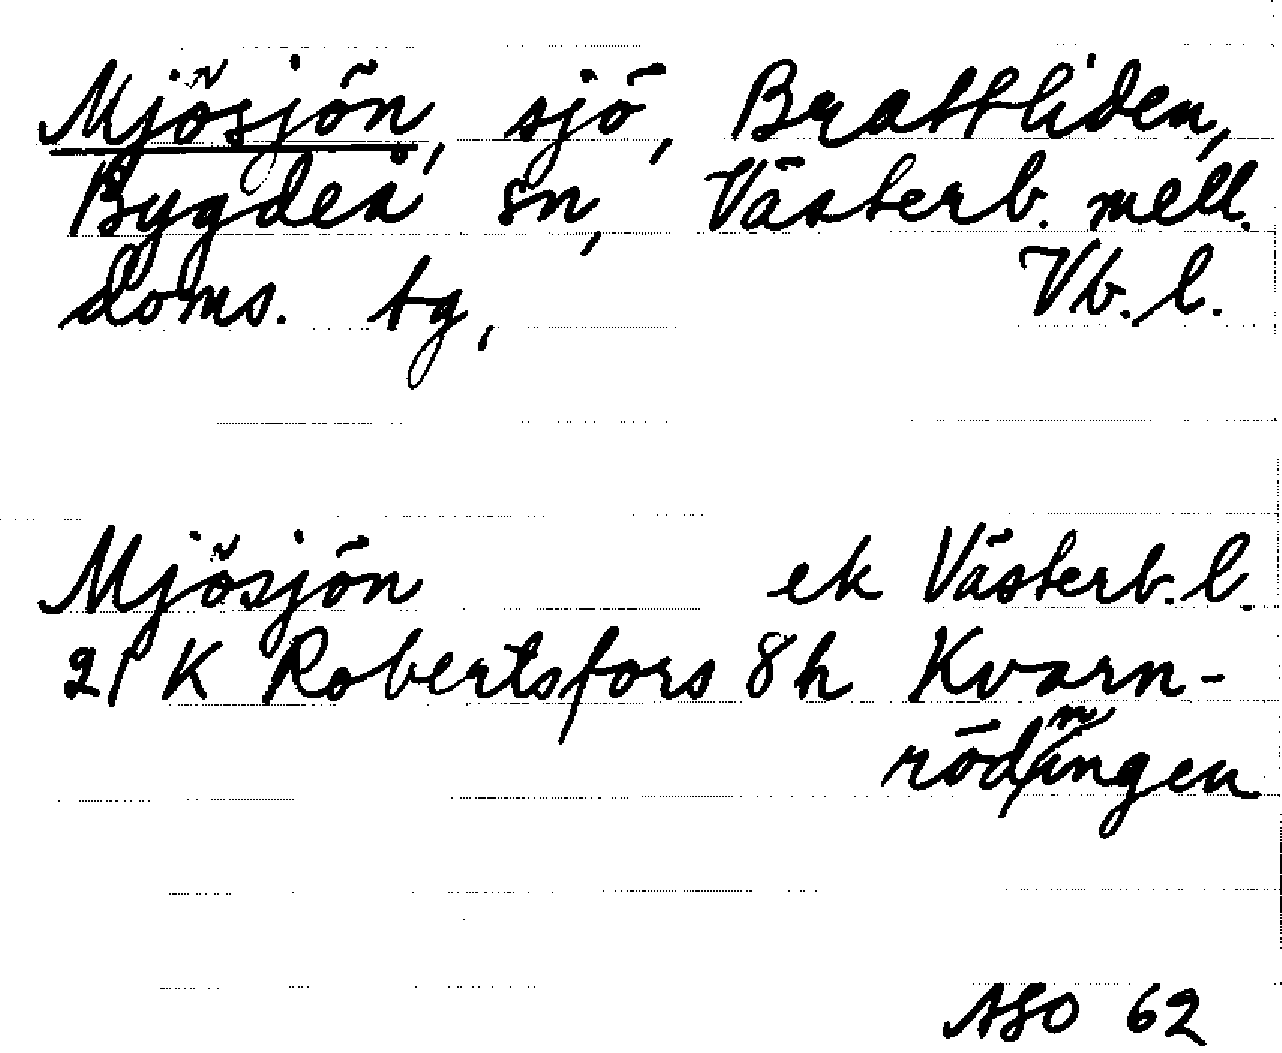 Mjösjön, sjö, Brattliden,
Bygdeå sn, Västerb. mell.
doms. tg, Vb. l.
Mjösjön ek Västerb. l.
21 K Robertsfors 8h Kvarn-
rödängen
ASO 62